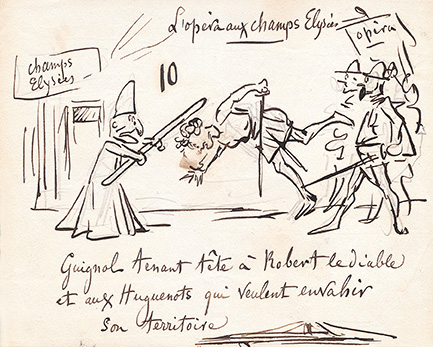 L'opéra aux champs Elysées
opéra
champs
Elysées
10
Guignol tenant tête à Robert le diable
et aux Huguenots qui veulent envahir
son territoire